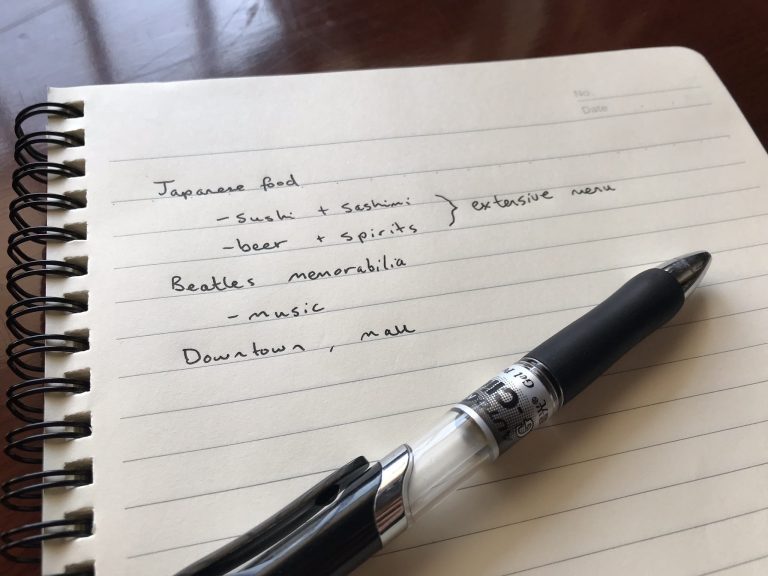 No.
Date
Japanese food
- sushi + sashimi } extensive menu
- beer + spirits
Beatles memorabilia
- music
Downtown, mall